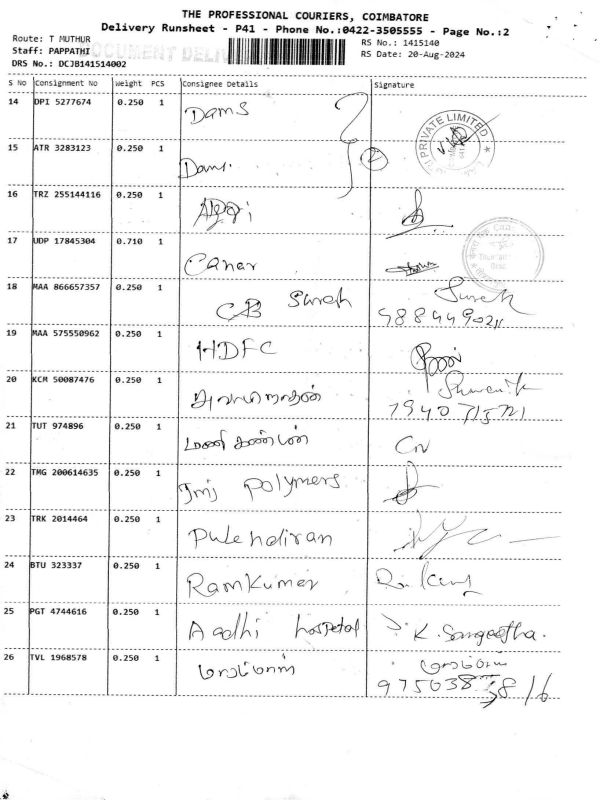 THE PROFESSIONAL COURIERS, COIMBATORE
Delivery Runsheet - P41 - Phone No.:0422-3505555 - Page No.:2
Route: T MUTHUR
RS No.: 1415140
Staff: PAPPATHI
RS Date: 20-Aug-2024
DRS No.: DCJB141514002
S No Consignment No Weight PCS Consignee Details Signature
14 DPI 5277674 0.250 1 Dams
PRIVATE LIMITED
15 ATR 3283123 0.250 1 Dams. 2
16 TRZ 255144116 0.250 1
17 UDP 17845304 0.710 1 Canar
18 MAA 866657357 0.250 1 CB Suresh Suresh
19 MAA 575550962 0.250 1 HDFC
20 KCM 50087476 0.250 1
21 TUT 974896 0.250 1 மணிகண்டன்
22 TMG 200614635 0.250 1 Tmj polymers
23 TRK 2014464 0.250 1 Pulendiran
24 BTU 323337 0.250 1 Ramkumar
25 PGT 4744616 0.250 1 Aadhi hospetal K. Sangeetha.
26 TVL 1968578 0.250 1